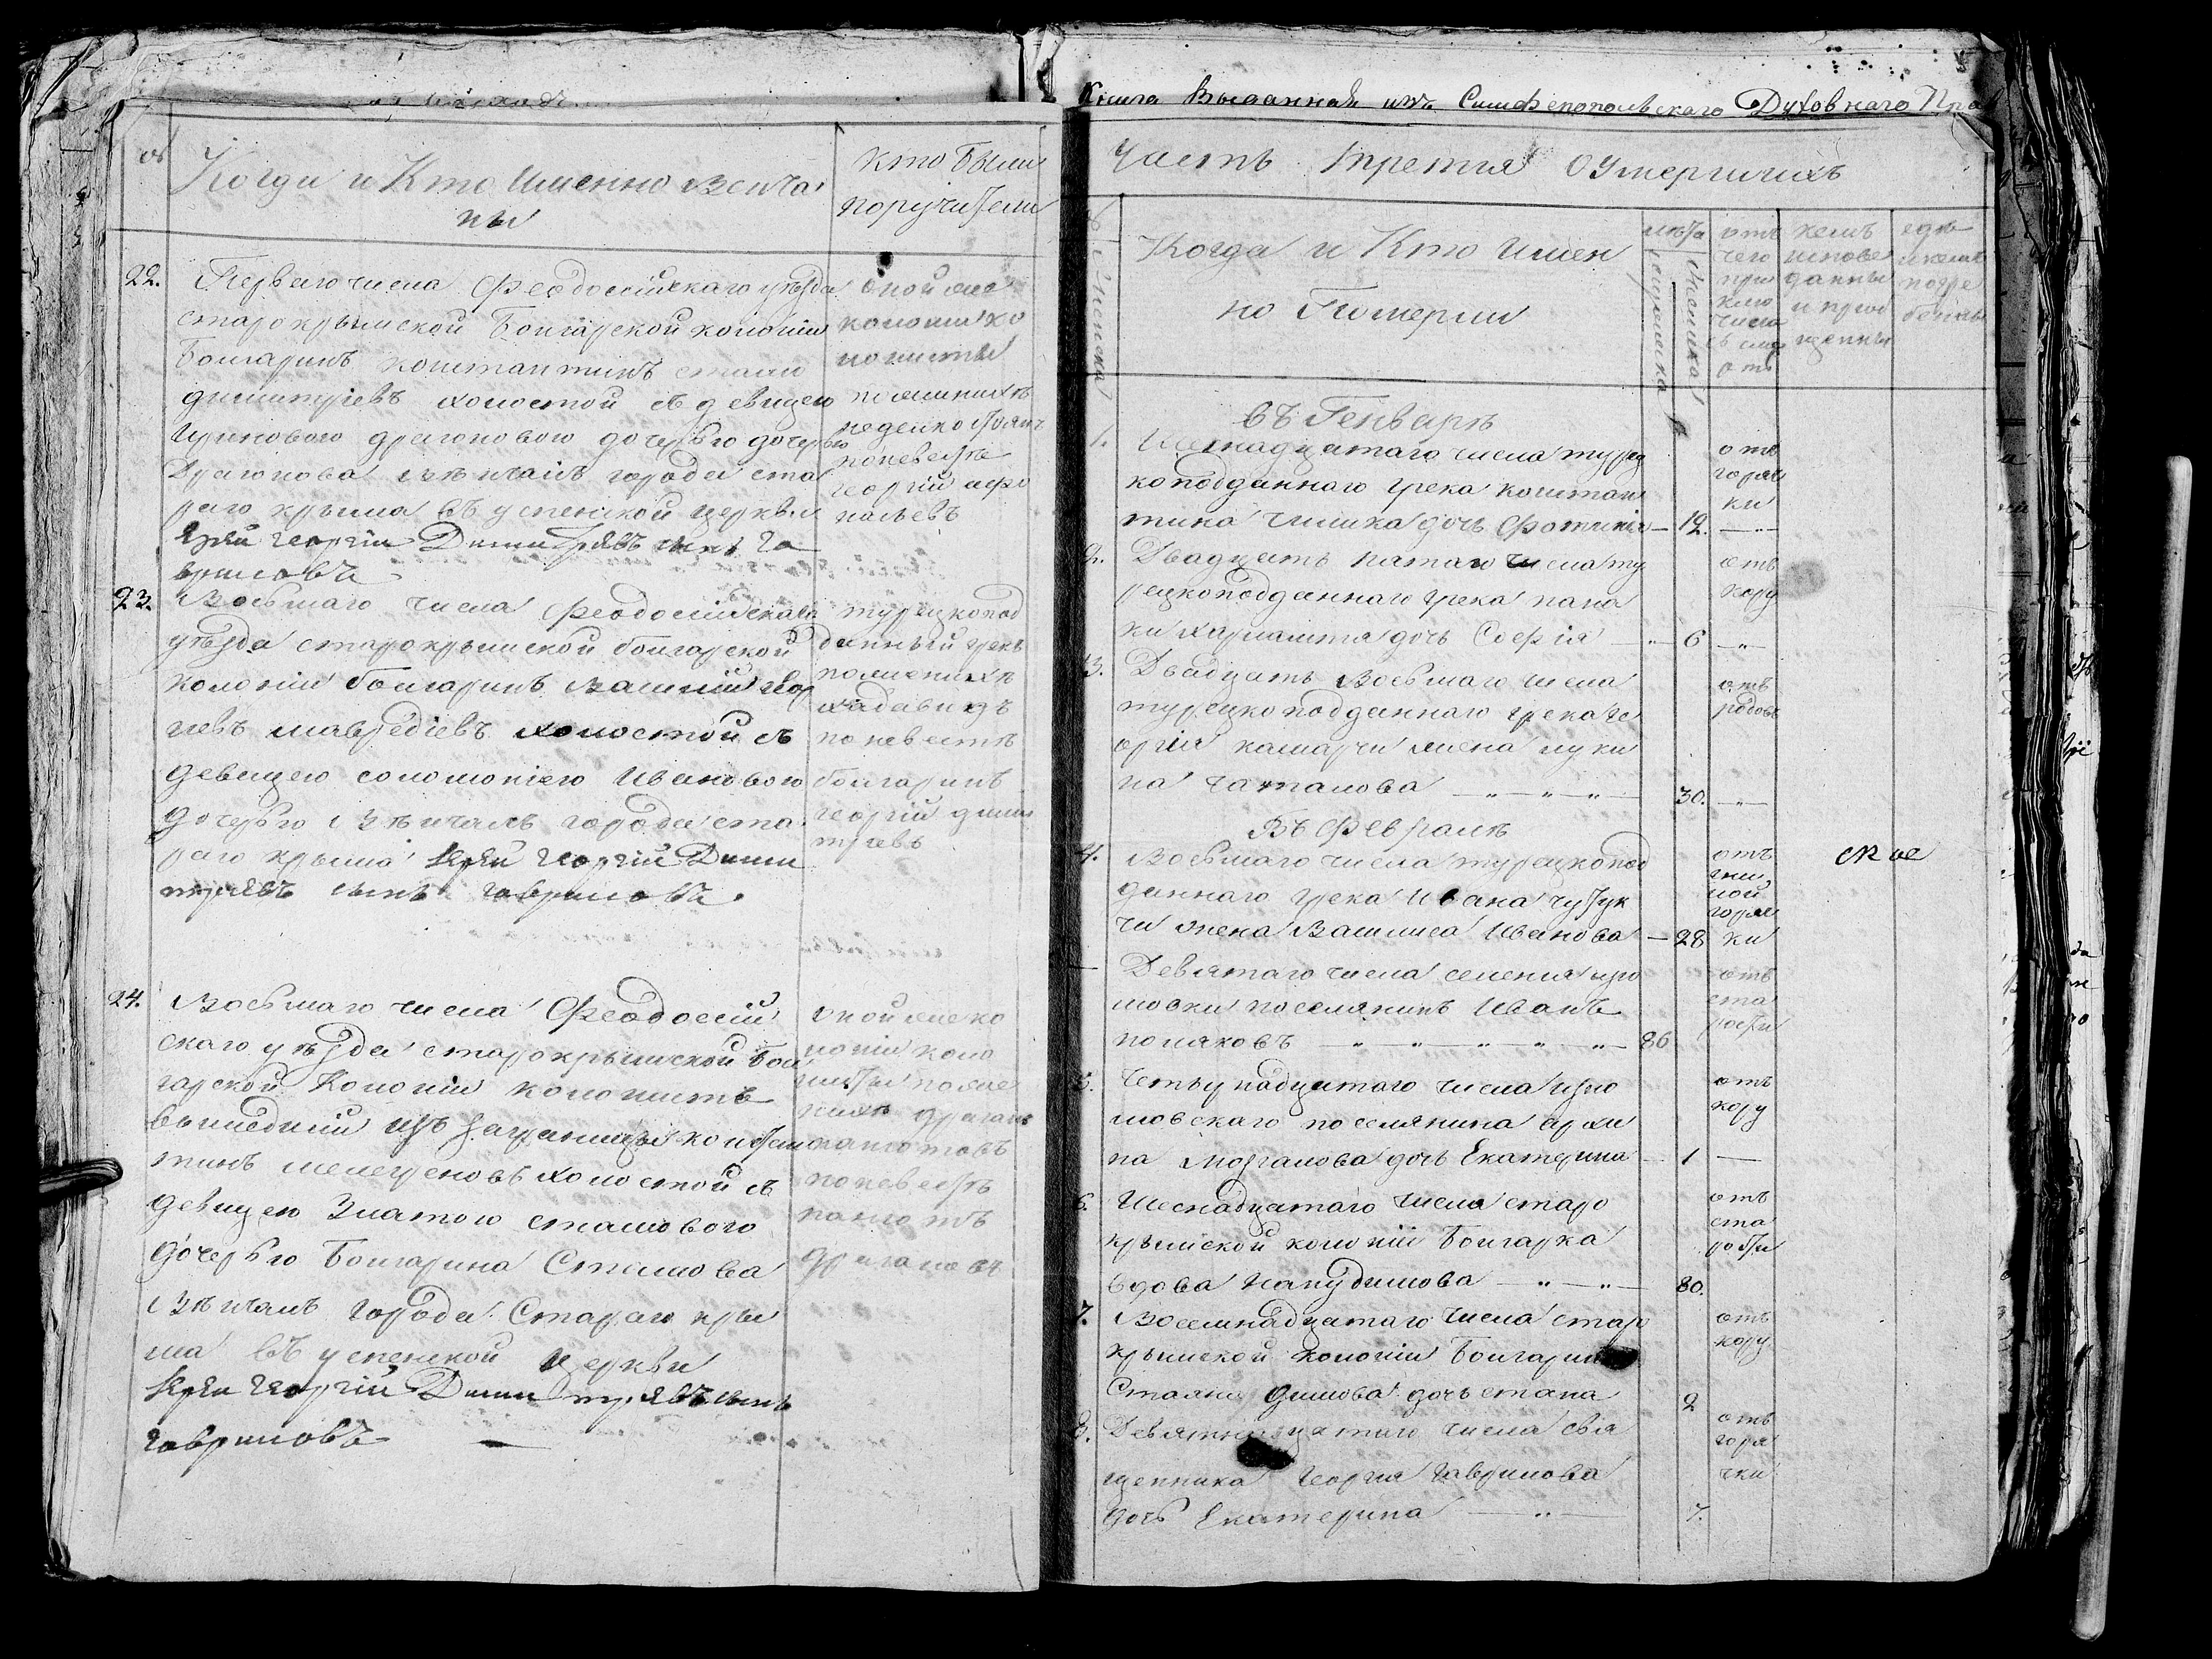 Когда и Кто Именно Венча
ны
кто были
поручители
22. Перваго числа Феодосійскаго уѣзда
старокрымской Болгарской колоніи
Болгаринъ константинъ
димитріевъ холостой съ девицею
дочерью
городи ста
раго крыма въ успенской церквѣ
Іерей Георгій Димитріевъ сынъ Га
вриловъ
оной же
колоніи ко
лонисты
по женихѣ
по невестѣ
георгій
23. Восьмаго числа феодосійскаго
уѣзда старокрымской болгарской
колоніи болгаринъ Василій геор
гіевъ мавредіевъ холостой съ
девицею соломоніею Ивановою
дочерью звѣнчалъ города ста
раго крыма Іерей Георгій Дими
тріевъ сынъ гавриловъ.
турецкопод
данный грекъ
по женихѣ
по невестѣ
болгаринъ
георгій дими
тріевъ
24. Восьмаго числа Феодосій
скаго уѣзда старокрымской бол
гарской Колоніи колонистъ
вышедшій изъ заграницы констан
тинъ холостой съ
девицею Златою стамовою
дочерью Болгарина Стамова
звѣнчалъ города Стараго кры
ма въ успенской Церкви
Іерей Георгій Димитріевъ сынъ
гавриловъ
оной же ко
лоніи коло
нисты по же
нихѣ драгань
по невестѣ
драгановъ
Книга Выданная изъ Симферопольскаго Духовнаго Пра
Часть третія О Умершихъ
Когда и Кто Имен
но Померли
лѣта
мужеска
женска
отъ
чего
при
клю
чила
съ смер
оть
кемъ
испове
даны
и приоб
щенны
где
и кемъ
погре
бены
въ Генварѣ
1. Шеснадцатаго числа турец
коподданнаго грека констан
тина дочь Фотинія — 12.
отъ
горяч
ки
2. Двадцать пятаго числа ту
рецкоподданнаго грека пана
дочь Софія — 6
отъ
кору
3. Двадцать Восьмаго числа
турецкоподданнаго грека Ге
оргія жена луки
на чаталова — 30.
отъ
родовъ
Въ Февралѣ
4. Восьмаго числа турецкопод
даннаго грека Ивана
чи жена Василиса Иванова — 28
отъ
гни
лой
горяч
ки
ское
Девятаго числа селенія изю
мовки поселянинъ Иванъ
поляковъ — 86
отъ
ста
рости
5. Четырнадцатаго числа изю
мовскаго поселянина архи
па Моргалова дочь Екатерина — 1
отъ
кору
6. Шеснадцатаго числа старо
крымской колоніи Болгарка
вдова — 80.
отъ
ста
рости
7. Восемнадцатаго числа старо
крымской колоніи Болгарина
Стояна димова дочь стана 2
отъ
кору
8. Девятнадцатаго числа свя
щенника Георгія Гаврилова
дочь Екатерина — 7.
отъ
горя
чки